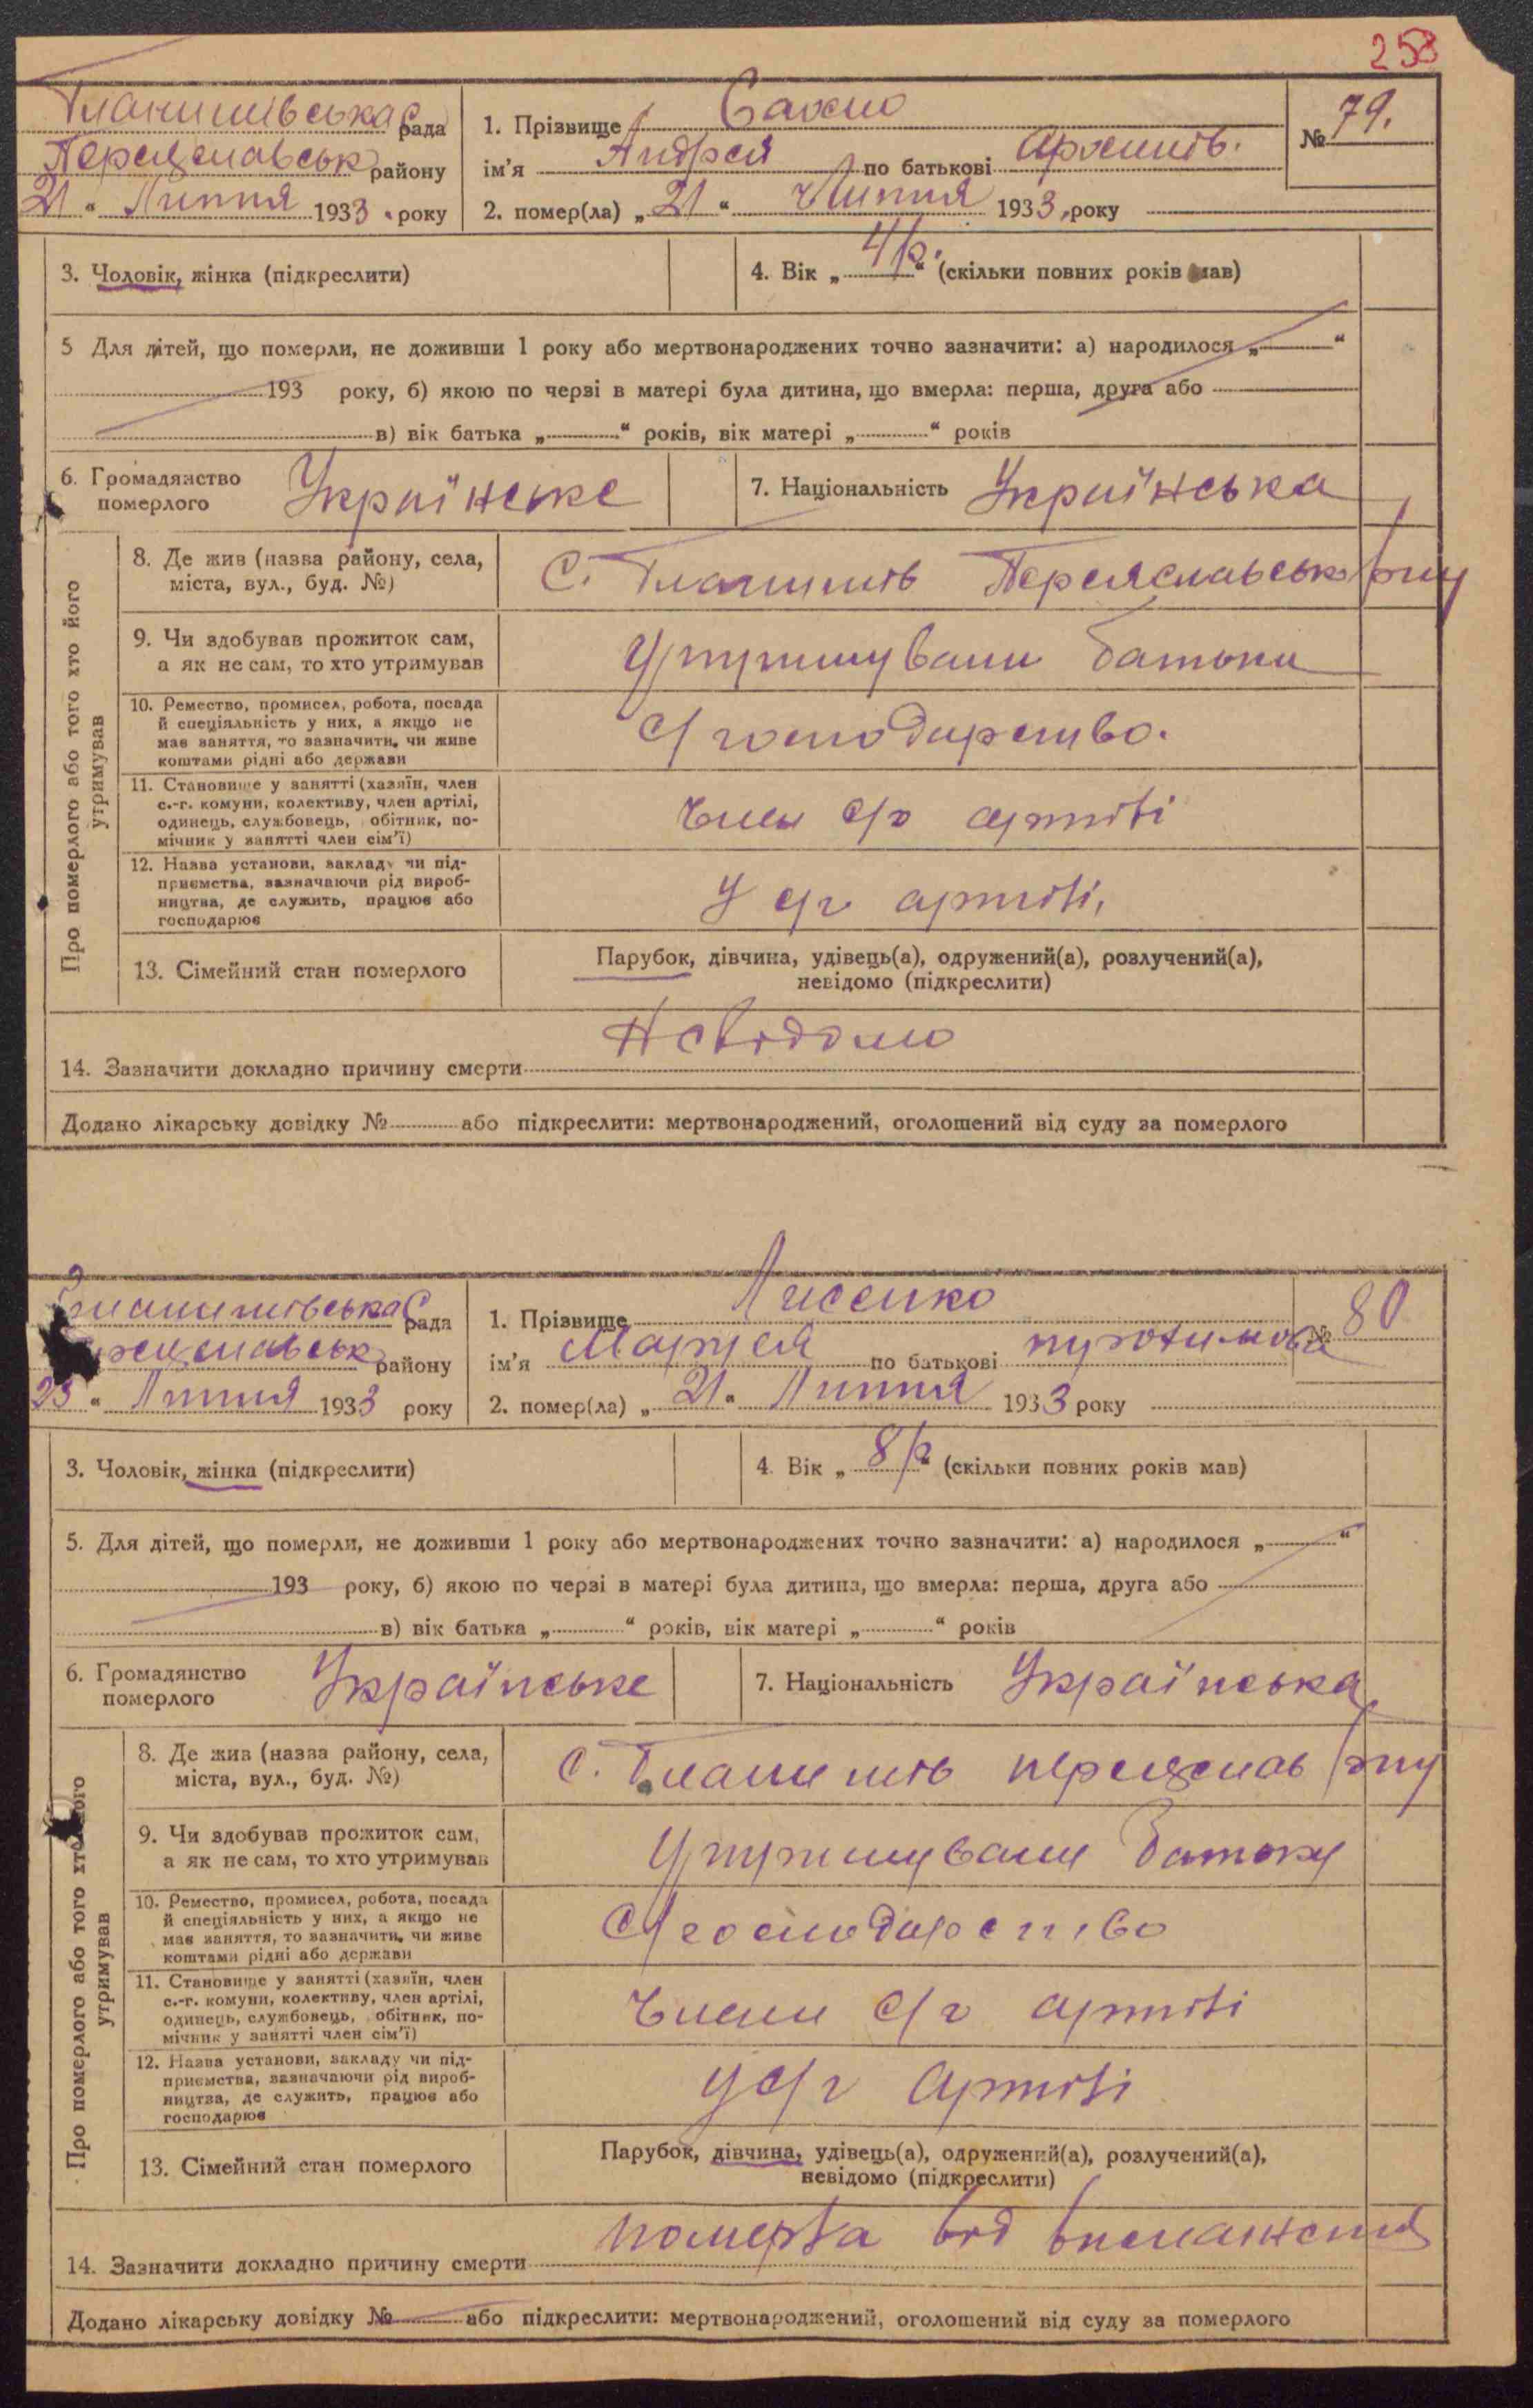 253
Гланишівська С рада
Переяславськ району
21 " Липня 1933. року
1. Прізвище Сахно
ім'я Андрей по батькові
2. помер(ла) „ 21 " Липня 1933, року
№ 79.
3. Чоловік, жінка (підкреслити)
4. Вік „ 4 р. " (скільки повних років мав)
5 Для дітей, що померли, не доживши 1 року або мертвонароджених точно зазначити: а) народилося „ "
193 року, б) якою по черзі в матері була дитина, що вмерла: перша, друга або
в) вік батька „ " років, вік матері „ " років
6. Громадянство
померлого
Українське
7. Національність Українська
Про померлого або того хто його
утримував
8. Де жив (назва району, села,
міста, вул., буд. №)
С. Гланишів Переяславськ р/ну
9. Чи здобував прожиток сам,
а як не сам, то хто утримував
Утримували батьки
10. Ремество, промисел, робота, посада
й специяльність у них, а якщо не
має заняття, то зазначити, чи живе
коштами рідні або держави
С/господарство.
11. Становище у занятті (хазяїн, член
с.-г. комуни, колективу, член артілі,
одинець, службовець, обітник, по-
мічник у занятті член сім'ї)
Член с/г артілі
12. Назва установи, закладу чи під-
приємства, зазначаючи рід вироб-
ництва, де служить, працює або
господарює
У с/г артілі,
13. Сімейний стан померлого
Парубок, дівчина, удівець(а), одружений(а), розлучений(а),
невідомо (підкреслити)
14. Зазначити докладно причину смерти Невідомо
Додано лікарську довідку № або підкреслити: мертвонароджений, оголошений від суду за померлого
Гланишівська С рада
Переяславськ району
23 " Липня 1933 року
1. Прізвище Лисенко
ім'я Маруся по батькові
2. помер(ла) „ 21 " Липня 1933 року
№ 80
3. Чоловік, жінка (підкреслити)
4. Вік „ 8 р " (скільки повних років мав)
5. Для дітей, що померли, не доживши 1 року або мертвонароджених точно зазначити: а) народилося „ "
193 року, б) якою по черзі в матері була дитина, що вмерла: перша, друга або
в) вік батька „ " років, вік матері „ " років
6. Громадянство
померлого
Українське
7. Національність Українська
Про померлого або того хто його
утримував
8. Де жив (назва району, села,
міста, вул., буд. №)
С. Гланишів Переяслав р/ну
9. Чи здобував прожиток сам,
а як не сам, то хто утримував
Утримували батьки
10. Ремество, промисел, робота, посада
й специяльність у них, а якщо не
має заняття, то зазначити, чи живе
коштами рідні або держави
С/господарство
11. Становище у занятті (хазяїн, член
с.-г. комуни, колективу, член артілі,
одинець, службовець, обітник, по-
мічник у занятті член сім'ї)
Члени с/г артілі
12. Назва установи, закладу чи під-
приємства, зазначаючи рід вироб-
ництва, де служить, працює або
господарює
У с/г артілі
13. Сімейний стан померлого
Парубок, дівчина, удівець(а), одружений(а), розлучений(а),
невідомо (підкреслити)
14. Зазначити докладно причину смерти померла від виснаження
Додано лікарську довідку № або підкреслити: мертвонароджений, оголошений від суду за померлого